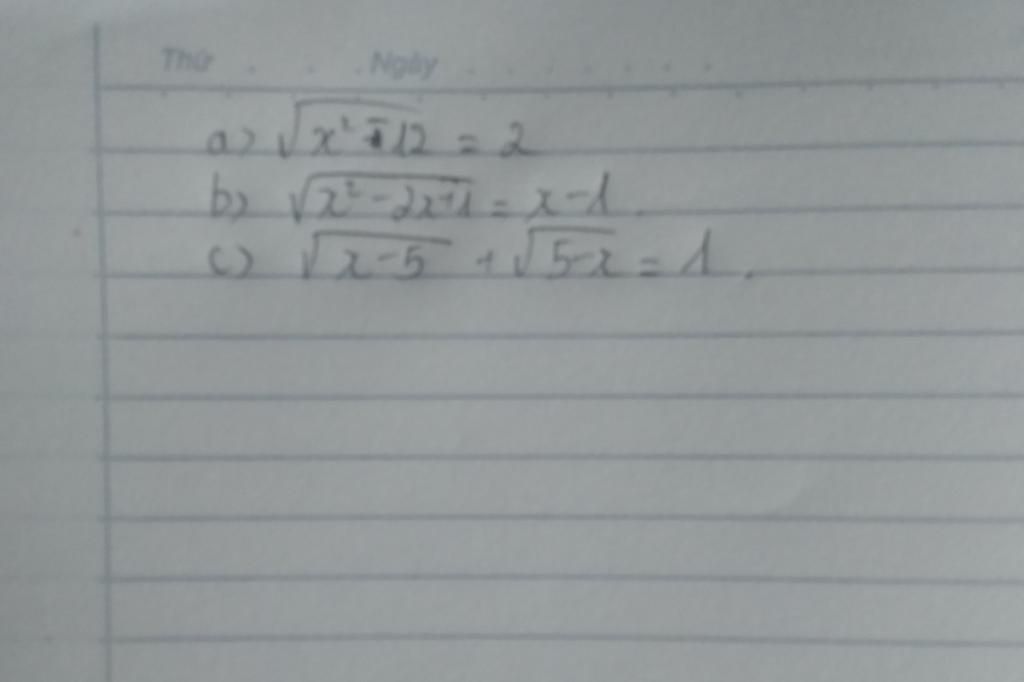 Thứ . . . Ngày . . . . . . . .
a) √(x² - 12) = 2
b) √(x² - 2x + 1) = x - 1.
c) √(x - 5) + √(5 - x) = 1.